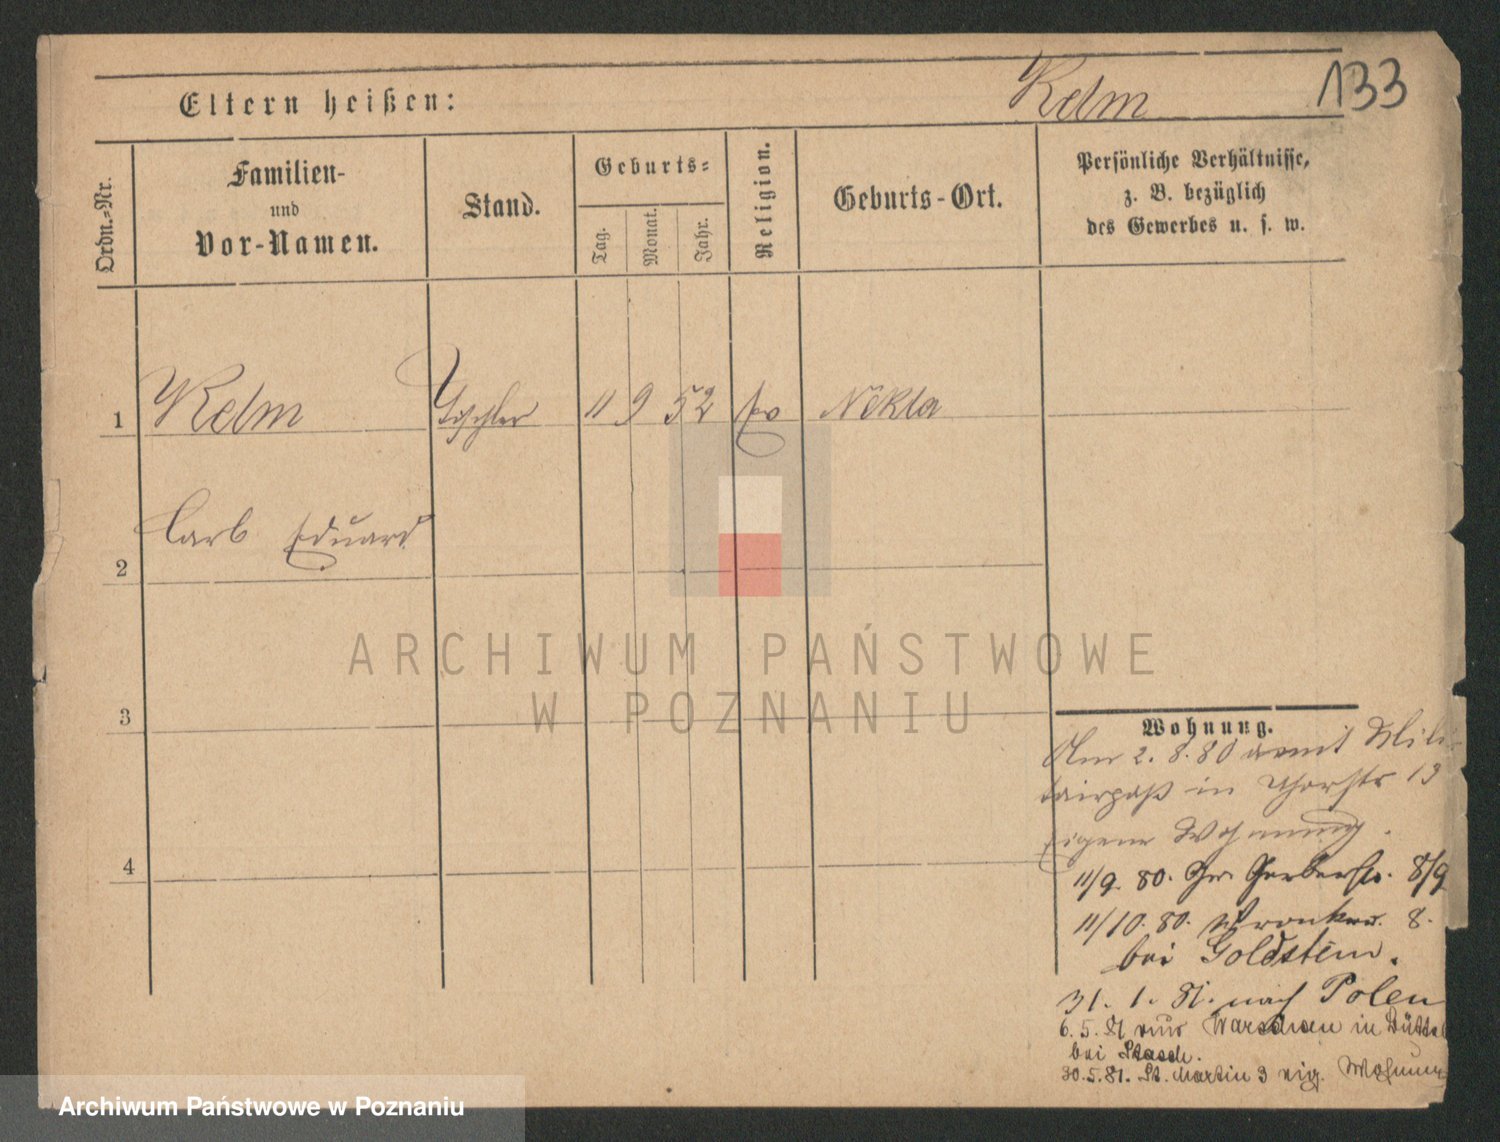 Eltern heißen:
Kelm
133
Ordn.=Nr.
Familien-
und
Vor-Namen.
Stand.
Geburts=
Tag.
Monat.
Jahr.
Religion.
Geburts-Ort.
Persönliche Verhältnisse,
z. B. bezüglich
des Gewerbes u. s. w.
1 Kelm Tischler 11 9 52 Ev Nekla
Carl Eduard
2
3
4
Wohnung.
Am 2. 8. 80 Mili
tairpaß in 13
eigene Wohnung.
11/9. 80. Gr. Gerberstr. 8/9
11/10. 80. Wronker. 8.
bei Goldstein.
31. 1. 81. nach Polen
6. 5. 81 aus Warschau in
bei Stasch.
30. 5. 81. St. Martin 3 eig. Wohnung
ARCHIWUM PAŃSTWOWE
W POZNANIU
Archiwum Państwowe w Poznaniu